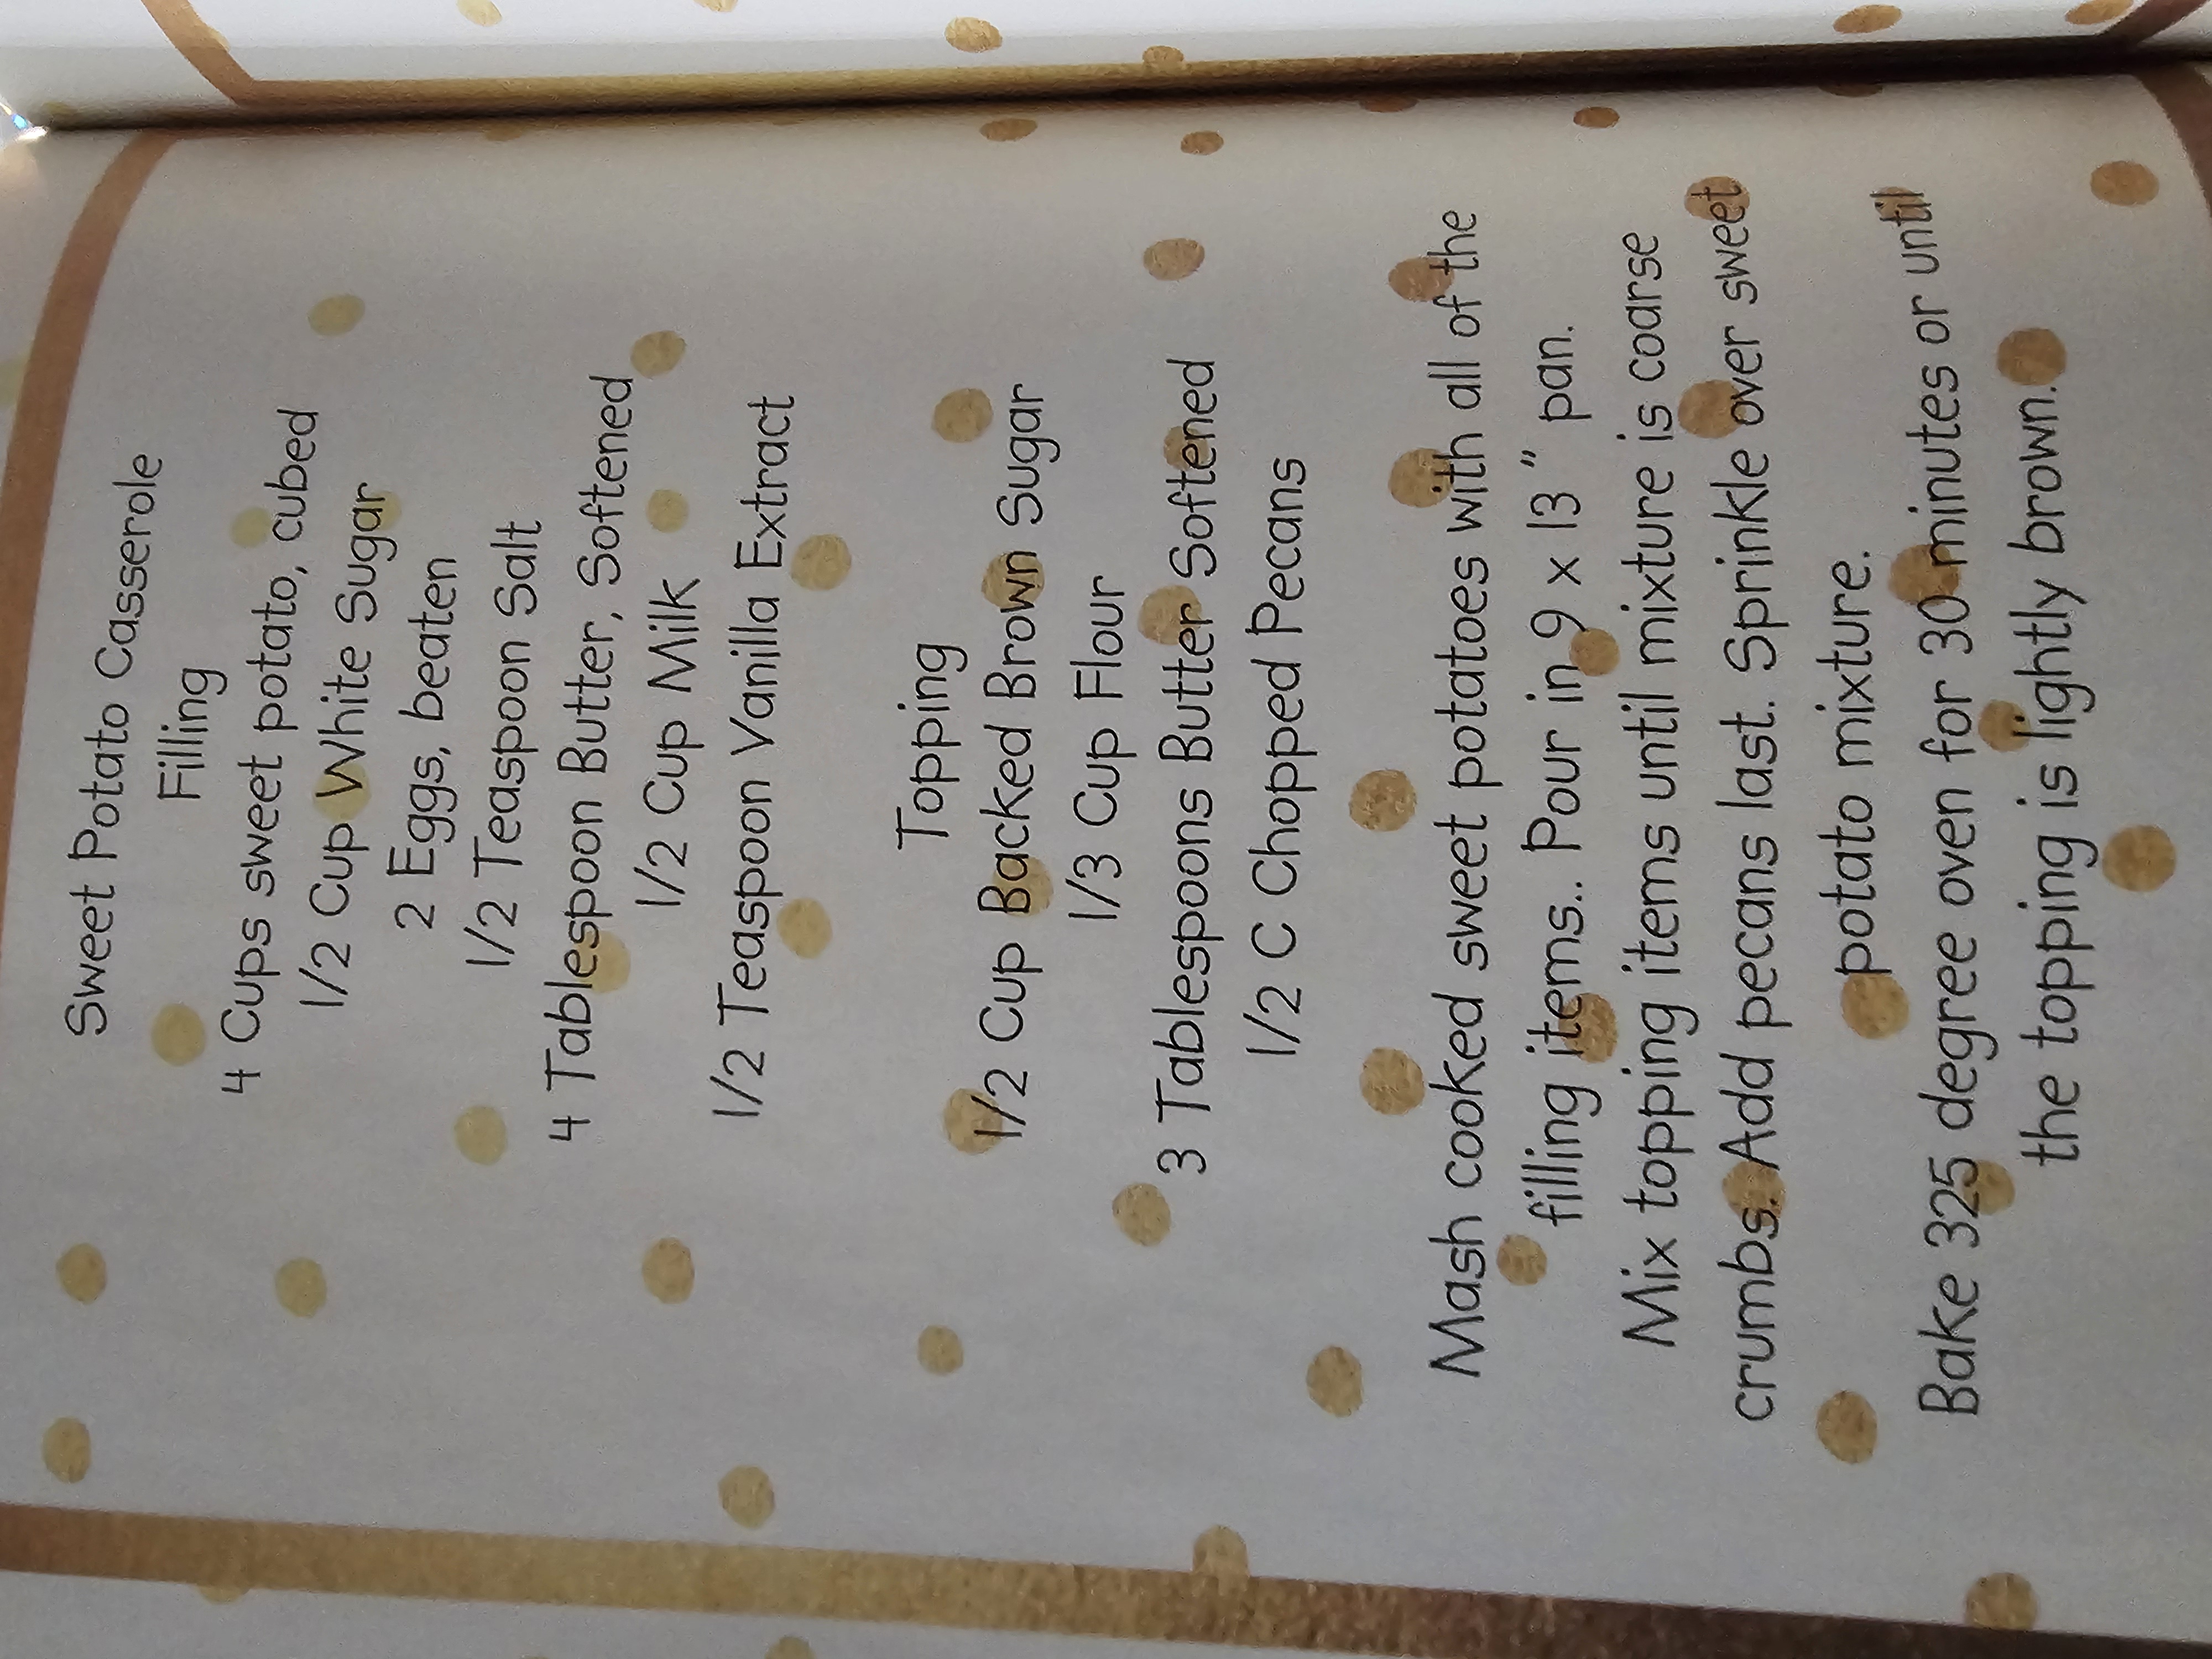 Sweet Potato Casserole
Filling
4 Cups sweet potato, cubed
1/2 Cup White Sugar
2 Eggs, beaten
1/2 Teaspoon Salt
4 Tablespoon Butter, Softened
1/2 Cup Milk
1/2 Teaspoon Vanilla Extract
Topping
1/2 Cup Backed Brown Sugar
1/3 Cup Flour
3 Tablespoons Butter Softened
1/2 C Chopped Pecans
Mash cooked sweet potatoes with all of the
filling items.. Pour in 9 x 13" pan.
Mix topping items until mixture is coarse
crumbs. Add pecans last. Sprinkle over sweet
potato mixture.
Bake 325 degree oven for 30 minutes or until
the topping is lightly brown.